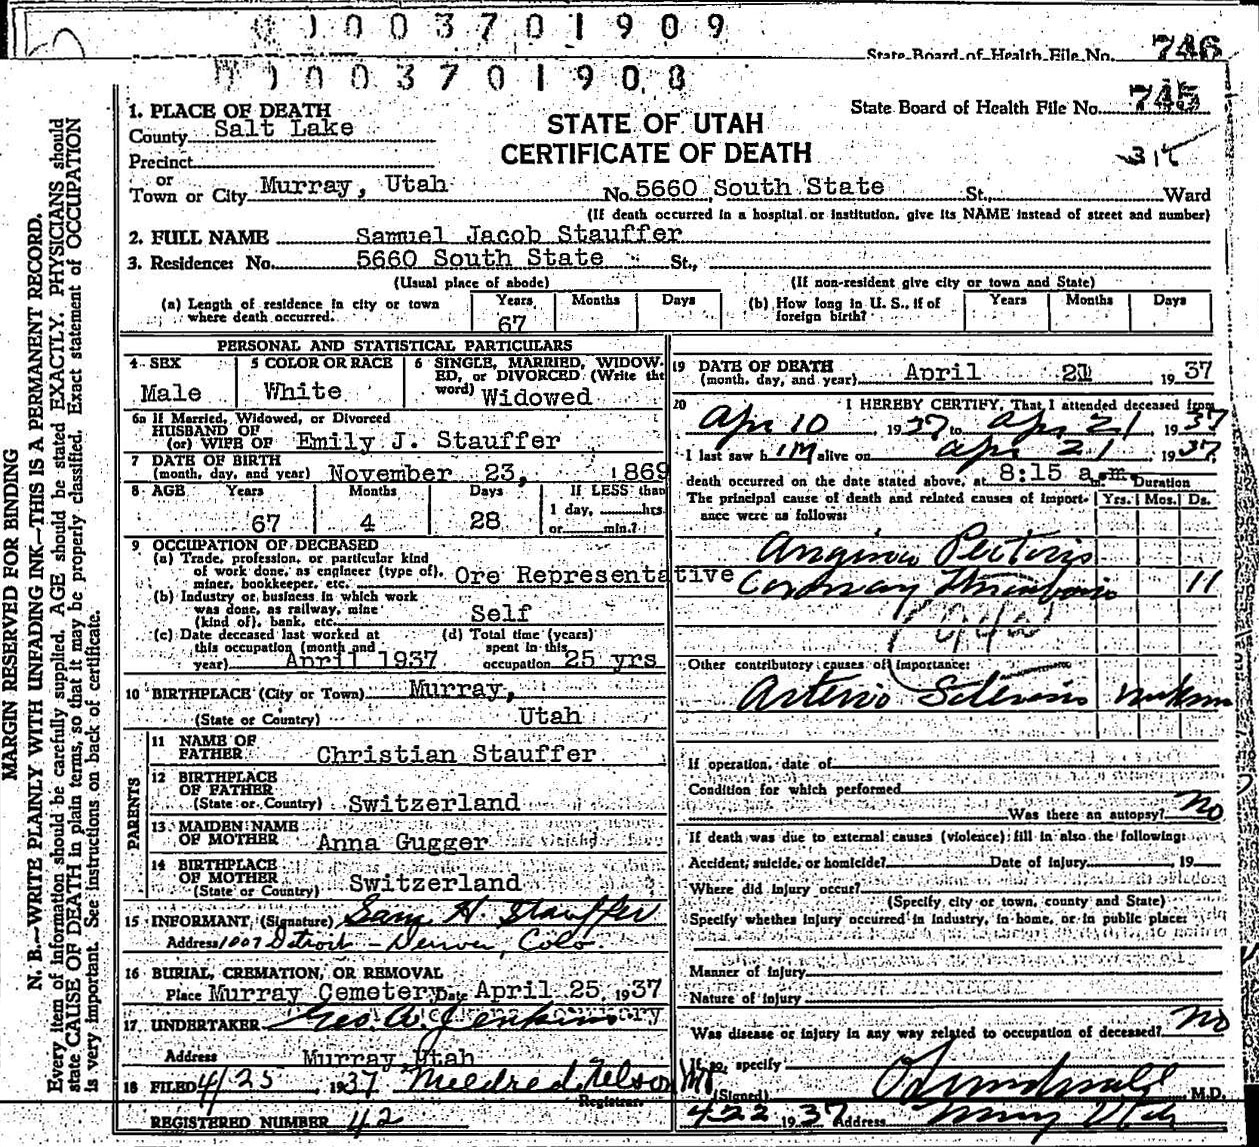 003701909
State Board of Health File No. 746
003701908
State Board of Health File No. 745
1. PLACE OF DEATH
County Salt Lake
STATE OF UTAH
CERTIFICATE OF DEATH
Precinct
or
Town or City Murray, Utah No. 5660 South State St., Ward
(If death occurred in a hospital or institution, give its NAME instead of street and number)
2. FULL NAME Samuel Jacob Stauffer
3. Residence: No. 5660 South State St.,
(Usual place of abode) (If non-resident give city or town and State)
(a) Length of residence in city or town where death occurred. Years 67 Months Days
(b) How long in U. S., if of foreign birth? Years Months Days
PERSONAL AND STATISTICAL PARTICULARS
4 SEX Male
5 COLOR OR RACE White
6 SINGLE, MARRIED, WIDOWED, or DIVORCED (Write the word) Widowed
6a If Married, Widowed, or Divorced
HUSBAND OF
(or) WIFE OF Emily J. Stauffer
7 DATE OF BIRTH
(month, day, and year) November 23, 1869
8 AGE Years 67 Months 4 Days 28 If LESS than 1 day, hrs. or min.?
9 OCCUPATION OF DECEASED
(a) Trade, profession, or particular kind
of work done, as engineer (type of),
miner, bookkeeper, etc. Ore Representative
(b) Industry or business in which work
was done, as railway, mine
(kind of), bank, etc. Self
(c) Date deceased last worked at
this occupation (month and
year) April 1937
(d) Total time (years)
spent in this
occupation 25 yrs
10 BIRTHPLACE (City or Town) Murray,
(State or Country) Utah
PARENTS
11 NAME OF
FATHER Christian Stauffer
12 BIRTHPLACE
OF FATHER
(State or Country) Switzerland
13 MAIDEN NAME
OF MOTHER Anna Gugger
14 BIRTHPLACE
OF MOTHER
(State or Country) Switzerland
15 INFORMANT, (Signature) Sam H. Stauffer
Address 1007 Detroit - Denver, Colo.
16 BURIAL, CREMATION, OR REMOVAL
Place Murray Cemetery Date April 25, 1937
17 UNDERTAKER Geo. A. Jenkins
Address Murray, Utah
18 FILED 4/25 1937 Mildred Nelson
Registrar.
REGISTERED NUMBER 42
19 DATE OF DEATH
(month, day, and year) April 21 1937
20 I HEREBY CERTIFY, That I attended deceased from
Apr 10 1937 to Apr 21 1937
I last saw him alive on Apr 21 1937
death occurred on the date stated above, at 8:15 a.m.
Duration
The principal cause of death and related causes of importance were as follows: Yrs. Mos. Ds.
Angina Pectoris
Coronary Thrombosis 11
Other contributory causes of importance:
Arterio Sclerosis unknown
If operation, date of
Condition for which performed
Was there an autopsy? No
If death was due to external causes (violence) fill in also the following:
Accident, suicide, or homicide? Date of injury 19
Where did injury occur?
(Specify city or town, county and State)
Specify whether injury occurred in industry, in home, or in public place:
Manner of injury
Nature of injury
Was disease or injury in any way related to occupation of deceased? No
If so, specify
(Signed) M.D.
4-22 1937 Address Murray Utah
MARGIN RESERVED FOR BINDING
N. B.—WRITE PLAINLY WITH UNFADING INK—THIS IS A PERMANENT RECORD.
Every item of information should be carefully supplied. AGE should be stated EXACTLY. PHYSICIANS should
state CAUSE OF DEATH in plain terms, so that it may be properly classified. Exact statement of OCCUPATION
is very important. See instructions on back of certificate.